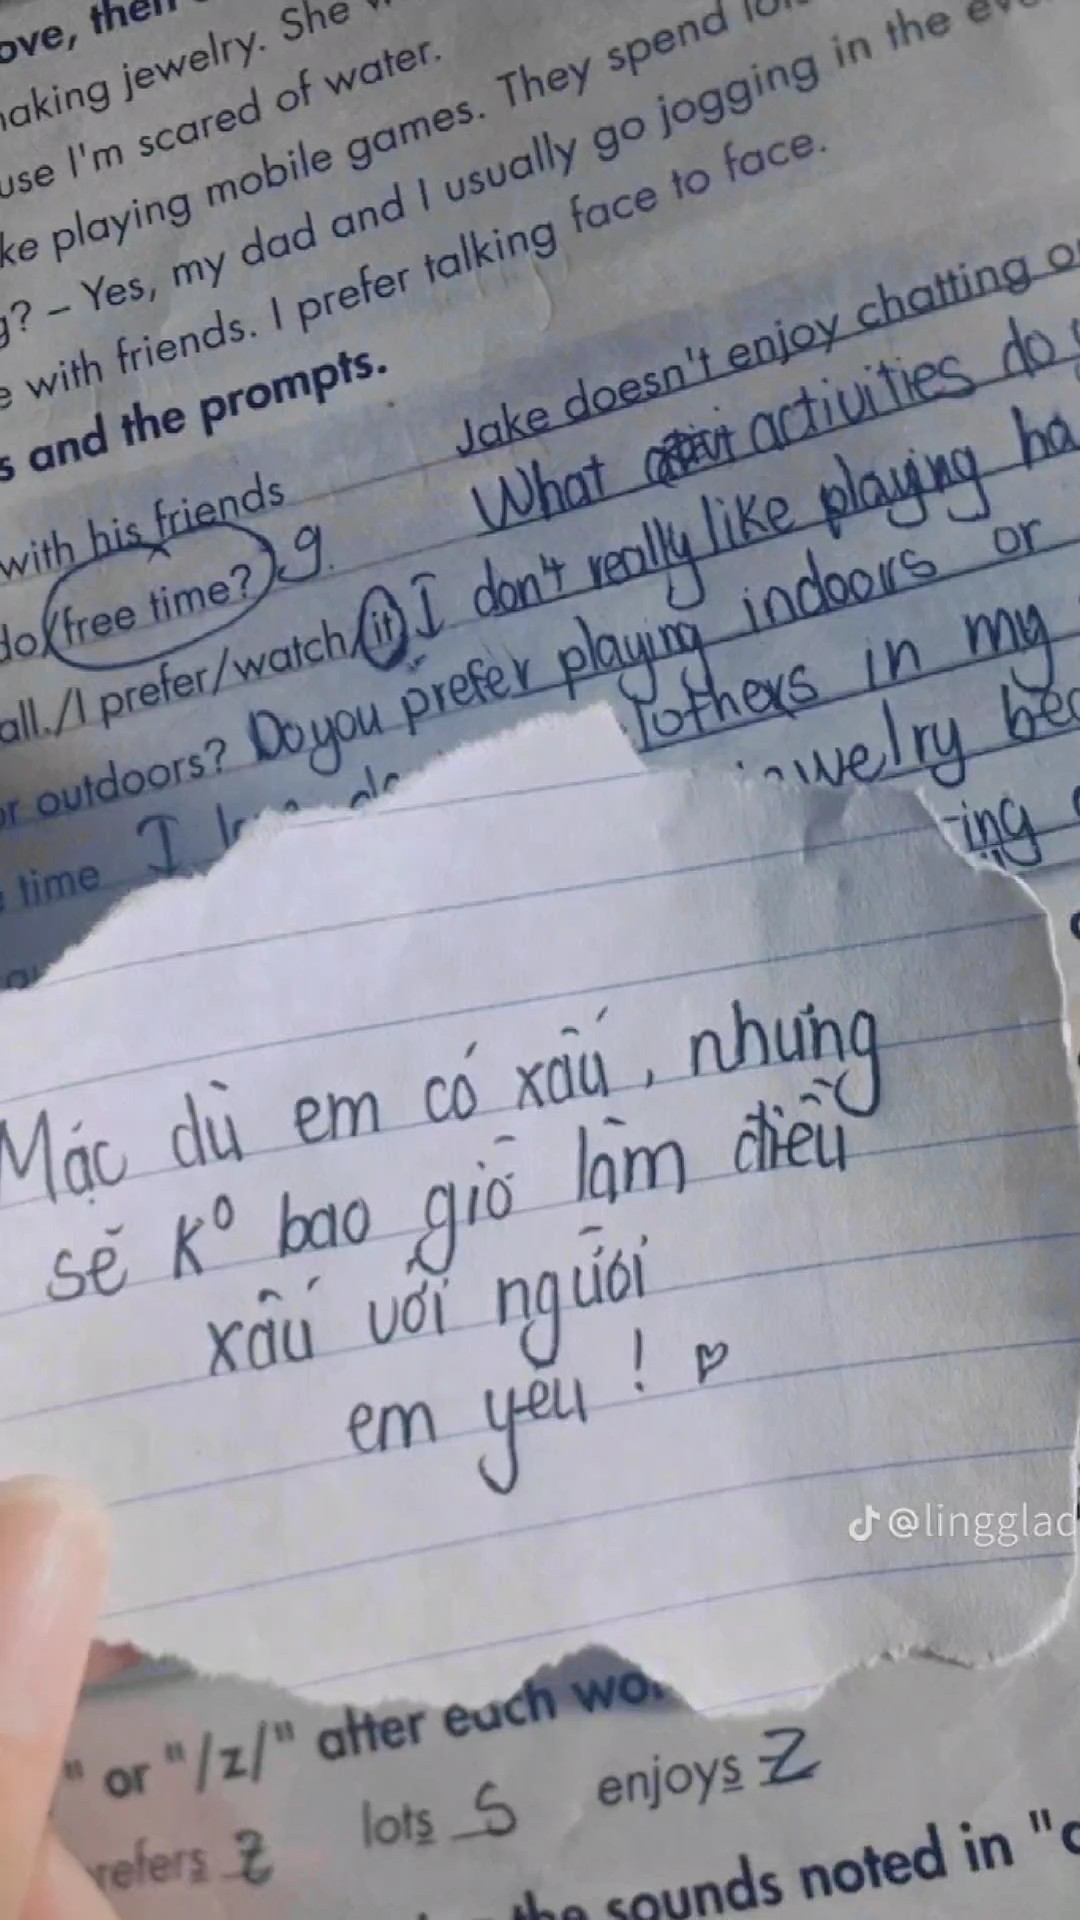 ove, then
making jewelry. She
use I'm scared of water.
ke playing mobile games. They spend
g? – Yes, my dad and I usually go jogging in the eve
e with friends. I prefer talking face to face.
s and the prompts.
with his friends Jake doesn't enjoy chatting o
do/free time? g. What activities do
all./I prefer/watch/it I don't really like playing ha
or outdoors? Do you prefer playing indoors or
time I others in my
welry bec
ing
Mặc dù em có xấu, nhưng
sẽ K° bao giờ làm điều
xấu với người
em yêu ! ♡
@lingglad
" or "/z/" after each wo
refers Z lots S enjoys Z
the sounds noted in "c